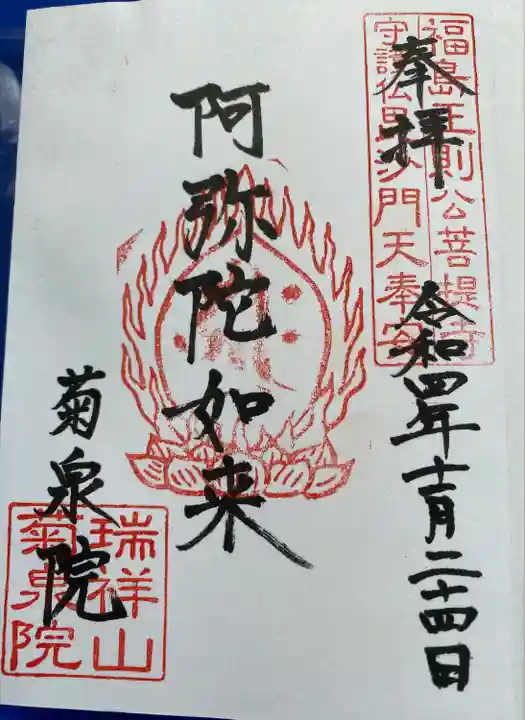 奉拝
福島正則公菩提寺
守護仏毘沙門天奉安
令和四年十一月二十四日
阿弥陀如来
菊泉院
瑞祥山
菊泉院